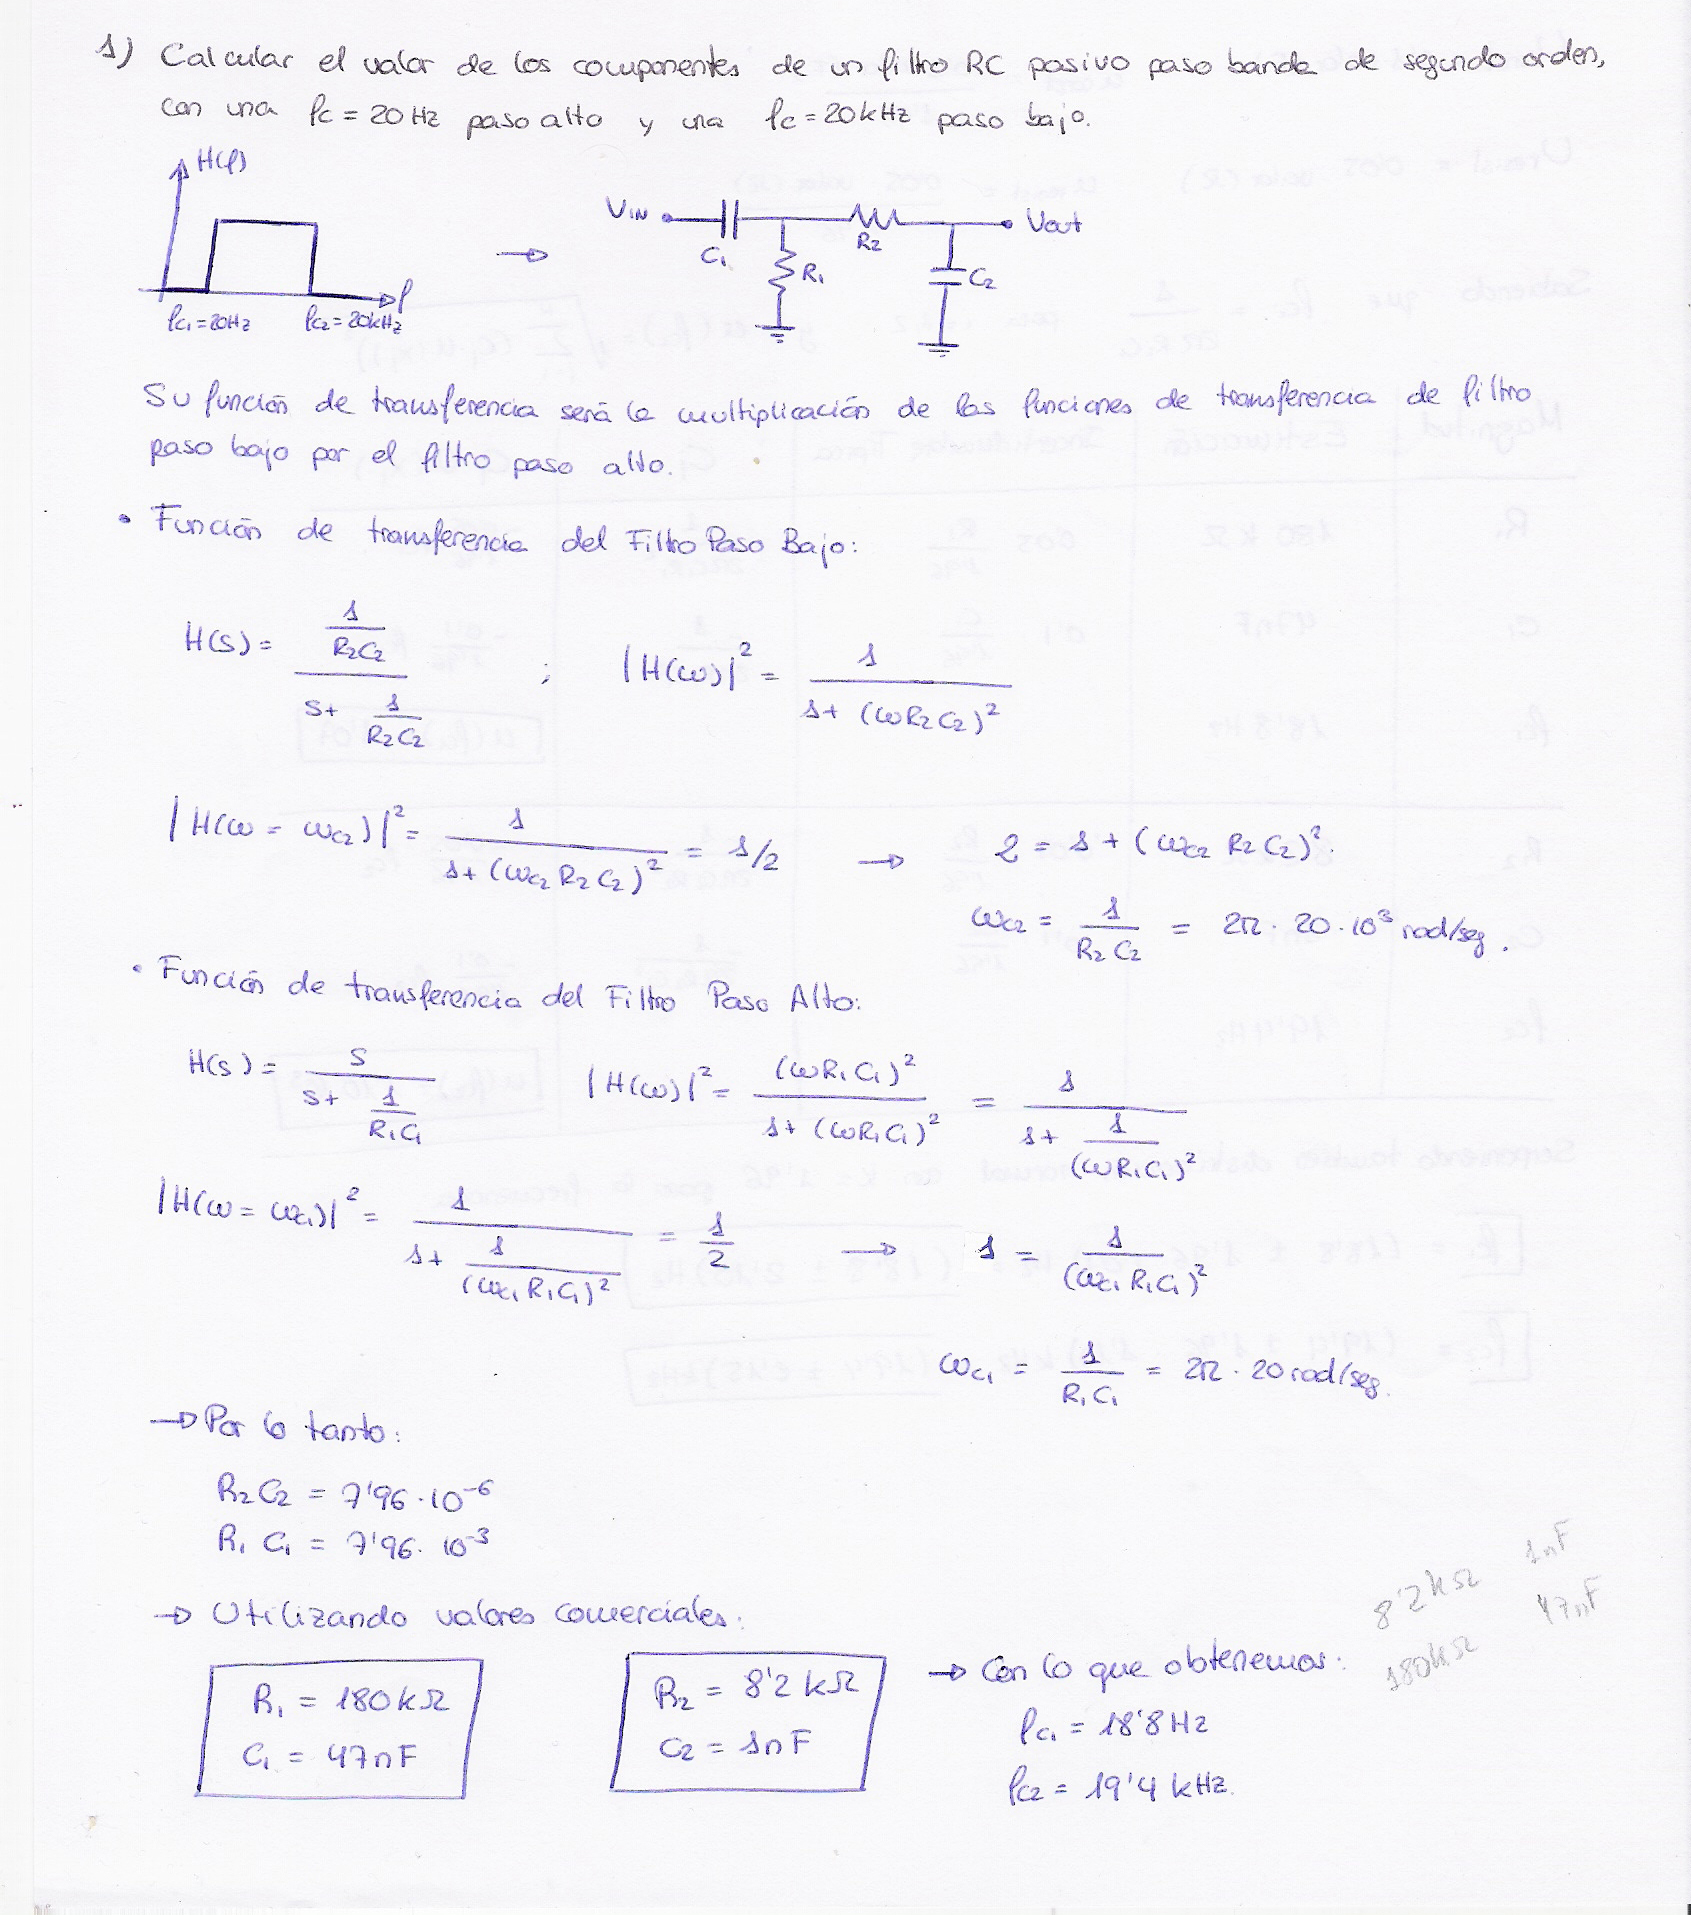 1) Calcular el valor de los componentes de un filtro RC pasivo paso banda de segundo orden,
con una fc = 20 Hz paso alto y una fc = 20kHz paso bajo.
H(f)
f
fc1 = 20Hz fc2 = 20kHz
VIN C1 R1 R2 C2 Vout
Su función de transferencia será la multiplicación de las funciones de transferencia de filtro
paso bajo por el filtro paso alto.
• Función de transferencia del Filtro Paso Bajo:
H(s) = (1/(R2C2)) / (s + 1/(R2C2)) ; |H(ω)|² = 1 / (1 + (ωR2C2)²)
|H(ω = ωc2)|² = 1 / (1 + (ωc2 R2 C2)²) = 1/2 → 2 = 1 + (ωc2 R2 C2)².
ωc2 = 1/(R2 C2) = 2π · 20 · 10³ rad/seg.
• Función de transferencia del Filtro Paso Alto:
H(s) = s / (s + 1/(R1C1)) |H(ω)|² = (ωR1C1)² / (1 + (ωR1C1)²) = 1 / (1 + 1/(ωR1C1)²)
|H(ω = ωc1)|² = 1 / (1 + 1/(ωc1 R1C1)²) = 1/2 → 1 = 1/(ωc1 R1C1)²
ωc1 = 1/(R1C1) = 2π · 20 rad/seg.
→ Por lo tanto:
R2C2 = 7'96 · 10⁻⁶
R1 C1 = 7'96 · 10⁻³
→ Utilizando valores comerciales:
R1 = 180kΩ
C1 = 47nF
R2 = 8'2 kΩ
C2 = 1nF
→ Con lo que obtenemos:
fc1 = 18'8 Hz
fc2 = 19'4 kHz.
8'2kΩ 1nF
180kΩ 47nF